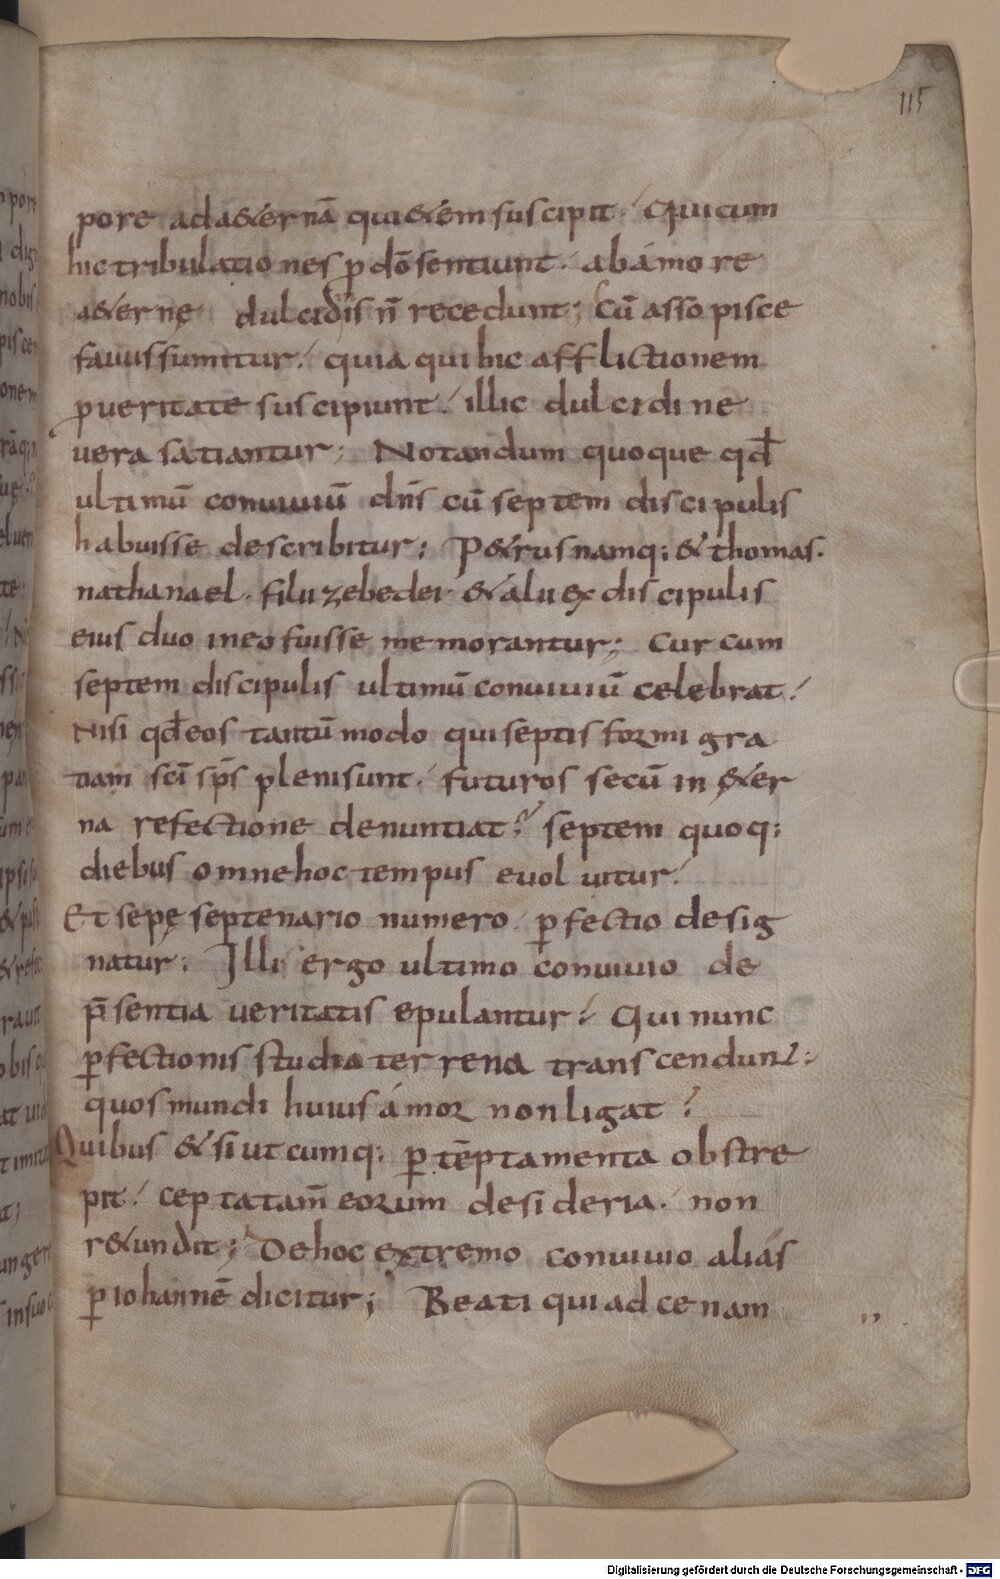 115
pore ad a&ernā qui&em suscipit. Qui cum
hic tribulationes p dō sentiunt. ab amore
a&ernę dulcidīis n̄ recedunt; Cū asso pisce
fauus sumitur. quia qui hic afflictionem
p ueritatē suscipiunt. illic dulcidine
uera satiantur; Notandum quoque qđ
ultimū conuiuiū dn̄s cū septem discipulis
habuisse describitur; P&rus namq; & thomas.
nathanael. filii zebedei. & alii ex discipulis
eius duo in eo fuisse memorantur; Cur cum
septem discipulis ultimū conuiuiū celebrat.
Nisi qđ eos tantū modo qui septiformi gra
tiam sc̄i sp̄s pleni sunt. futuros secū in &er
na refectione denuntiat? septem quoq;
diebus omne hoc tempus euoluitur.
Et sepę septenario numero pfectio desig
natur; Illi ergo ultimo conuiuio de
p̄sentia ueritatis epulantur. Qui nunc
pfectionis studio terrena transcendunt;
quos mundi huius ámor non ligat?
Quibus & si utcumq; p tēptamenta obstre
pit. cepta tam̄ eorum desideria. non
r&undit; De hoc extremo conuiuio aliás
p iohannē dicitur; Beati qui ad cenam
Digitalisierung gefördert durch die Deutsche Forschungsgemeinschaft - DFG